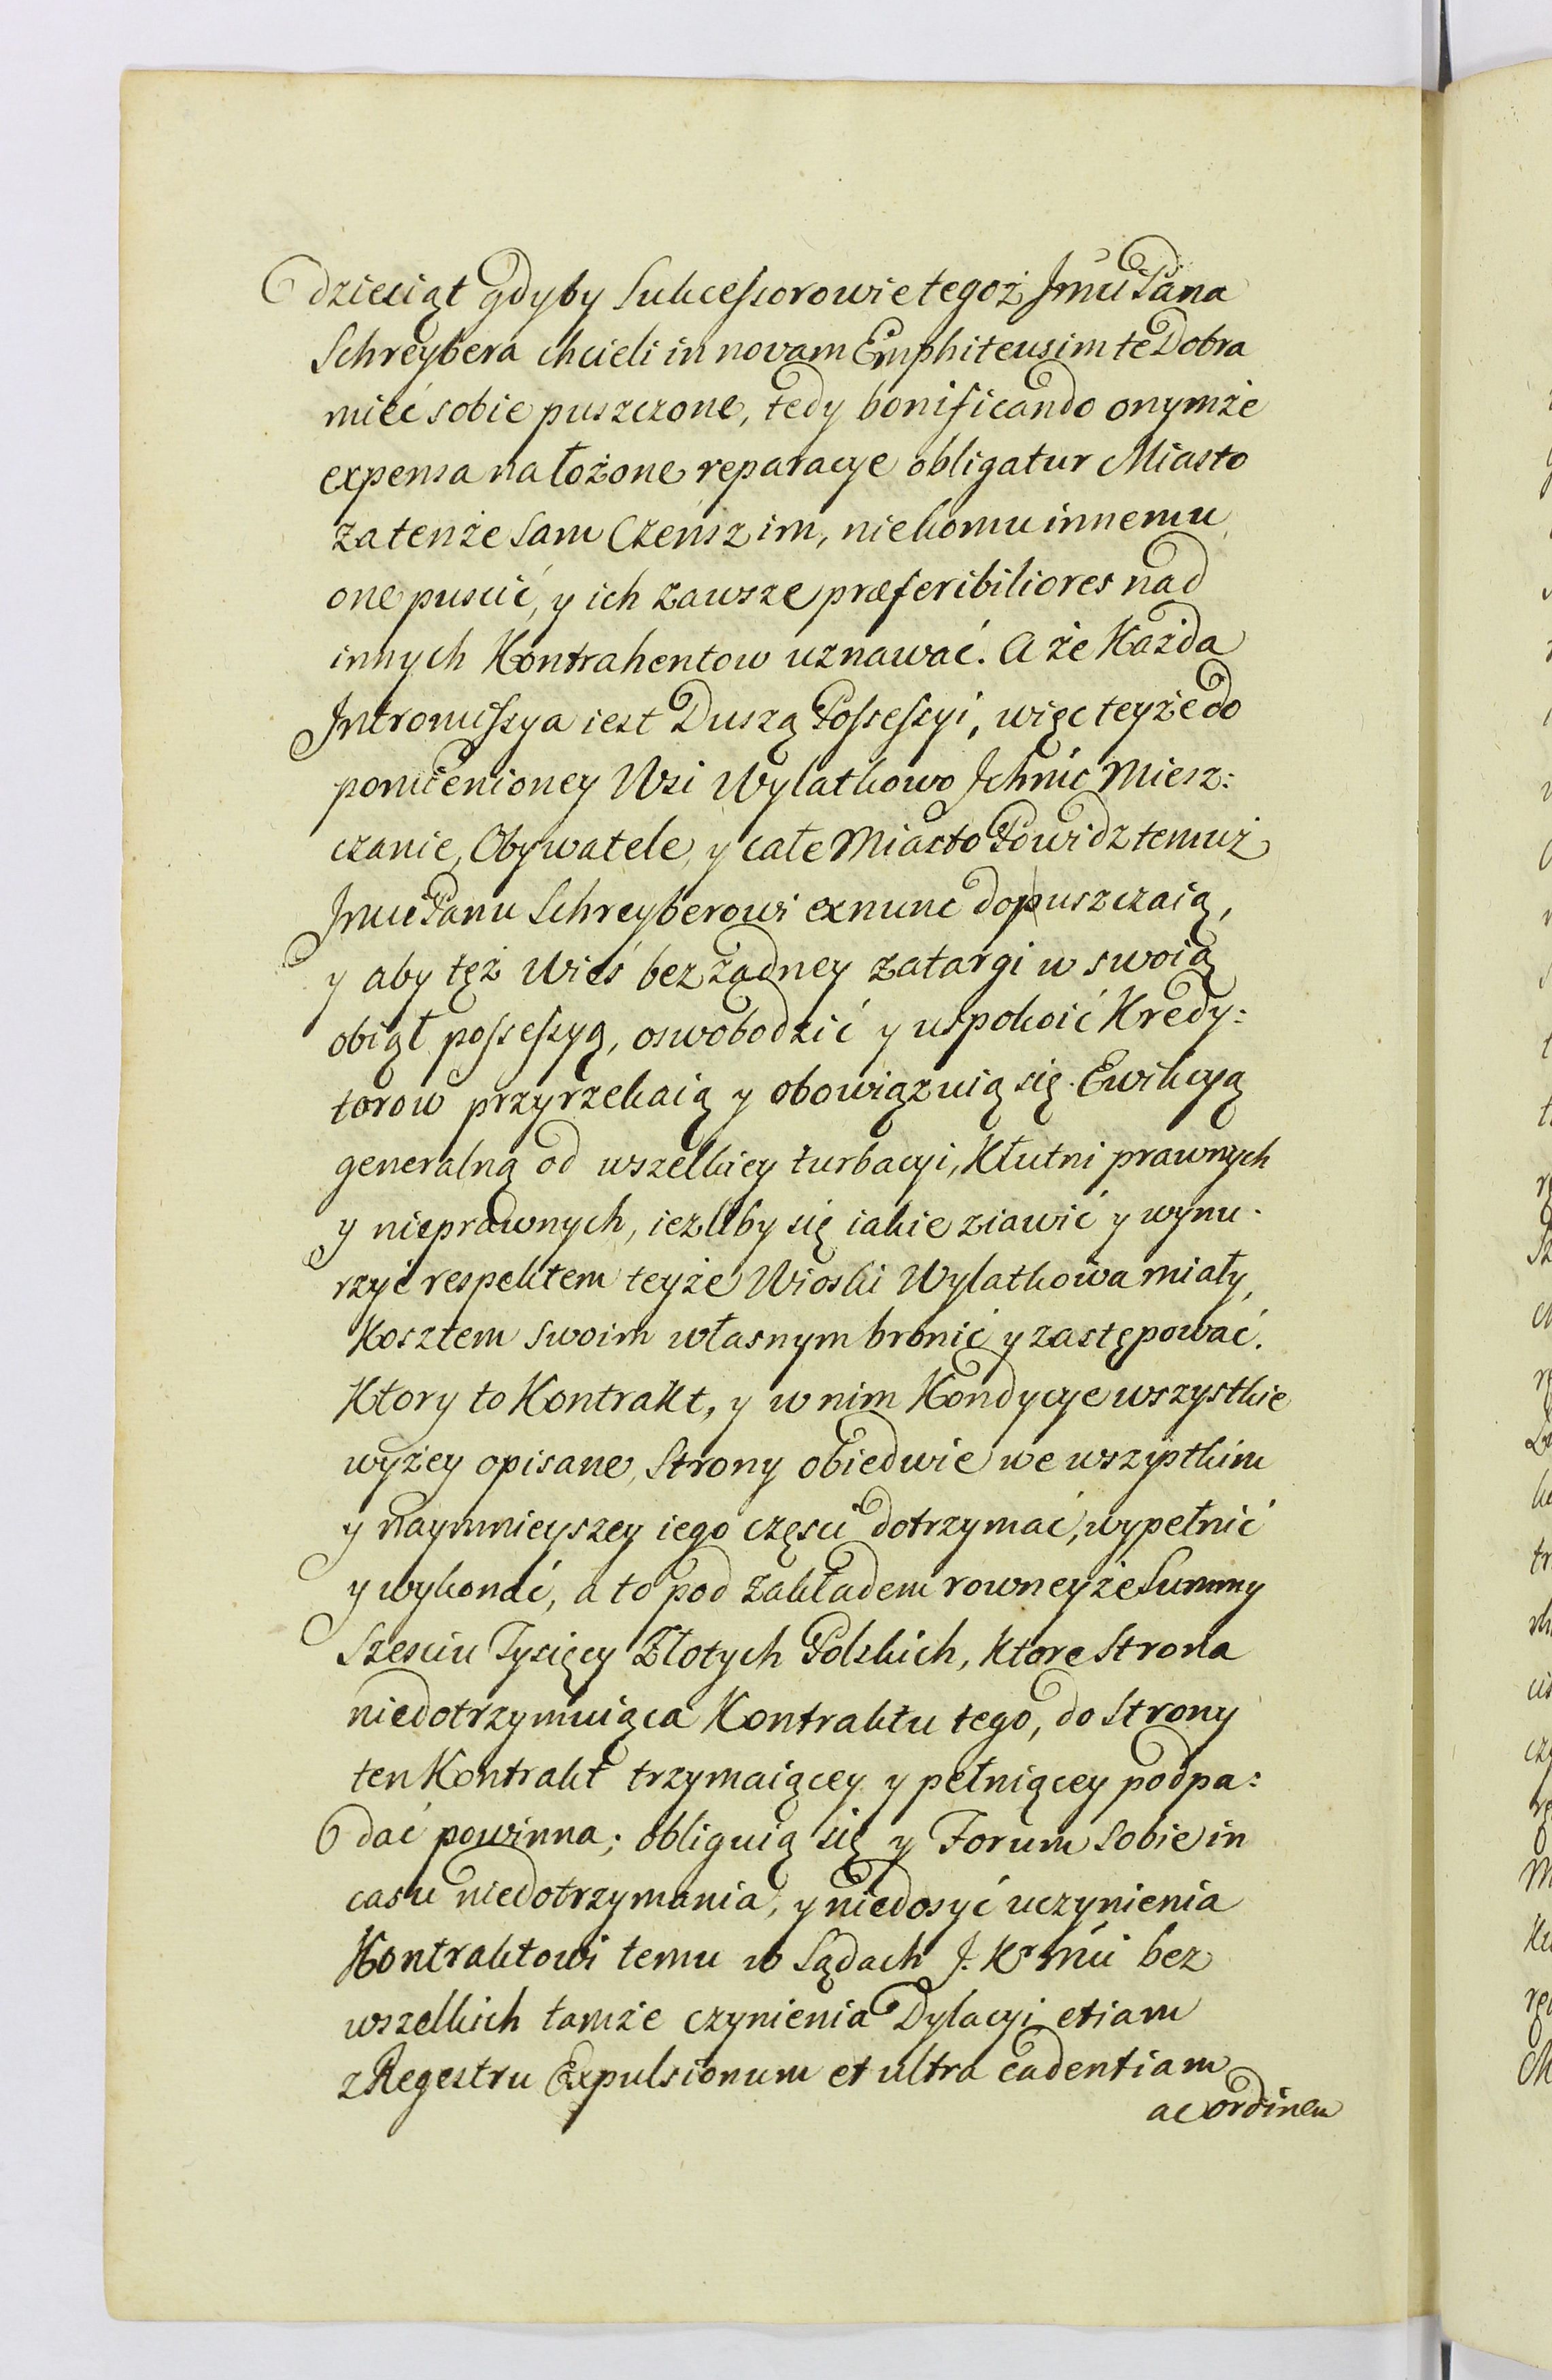 dziesiąt gdyby Sukcessorowie tegoż Jmci Pana
Schreybera chcieli in novam Emphiteusim te Dobra
mieć sobie puszczone, tedy bonificando onymże
expensa na łożone reparacye obligatur Miasto
za tenże Sam Czensz im, niekomu innemu
one puscić, y ich zawsze præferibiliores nad
innych Kontrahentow uznawać. A że Każda
Intromissya iest Duszą Possessyi, więc teyże do
pomienioney Wsi Wylatkowo Jchmć Miesz:
czanie, Obywatele, y całe Miasto Powidz temuż
Jmci Panu Schreyberowi exnunc dopuszczaią,
y aby tęż Wieś bez żadney zatargi w swoią
obiął possessyą, oswobodzić y uspokoić Kredy:
torow przyrzekaią y obowiązuią się. Ewikcyą
generalną od wszelkiey turbacyi, Kłutni prawnych
y nieprawnych, ieżliby się iakie ziawić y wynu-
rzyć respektem teyże Wioski Wylatkowa miały,
Kosztem swoim własnym bronić y zastępować.
Ktory to Kontrakt, y w nim Kondycye wszystkie
wyżey opisane, Strony obiedwie we wszystkim
y naymnieyszey iego częsci dotrzymać, wypełnić
y wykonać, a to pod zakładem rowneyże Summy
Szesciu Tysięcy Złotych Polskich, Ktore Strona
niedotrzymuiąca Kontraktu tego, do Strony
ten Kontrakt trzymaiącey y pełniącey podpa:
dać powinna; obliguią się y Forum Sobie in
casu niedotrzymania, y niedosyć uczynienia
Kontraktowi temu w Sądach J. Kr Mci bez
wszelkich tamże czynienia Dylacyi etiam
z Regestru Expulsionum et ultra cadentiam
ac ordinem